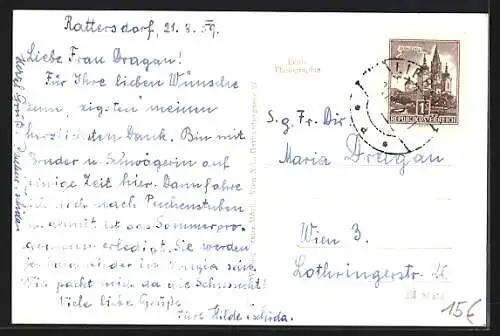 Rattersdorf, 21.8.59.
Liebe Frau Dragan!
Für Ihre lieben Wünsche
zum "zigsten" meinen
herzlichsten Dank. Bin mit
Bruder u. Schwägerin auf
einige Zeit hier. Dann fahre
ich noch nach Puchenstuben
u. damit ist das Sommerpro-
gramm erledigt. Sie werden
ja bald wieder in sein.
Wie packt mich da die Sehnsucht!
Viele liebe Grüße
Ihre Hilde
Echte
Photographie
REPUBLIK ÖSTERREICH
S.g. Fr. Dir.
Maria Dragan
Wien 3.
Lothringerstr.
15€